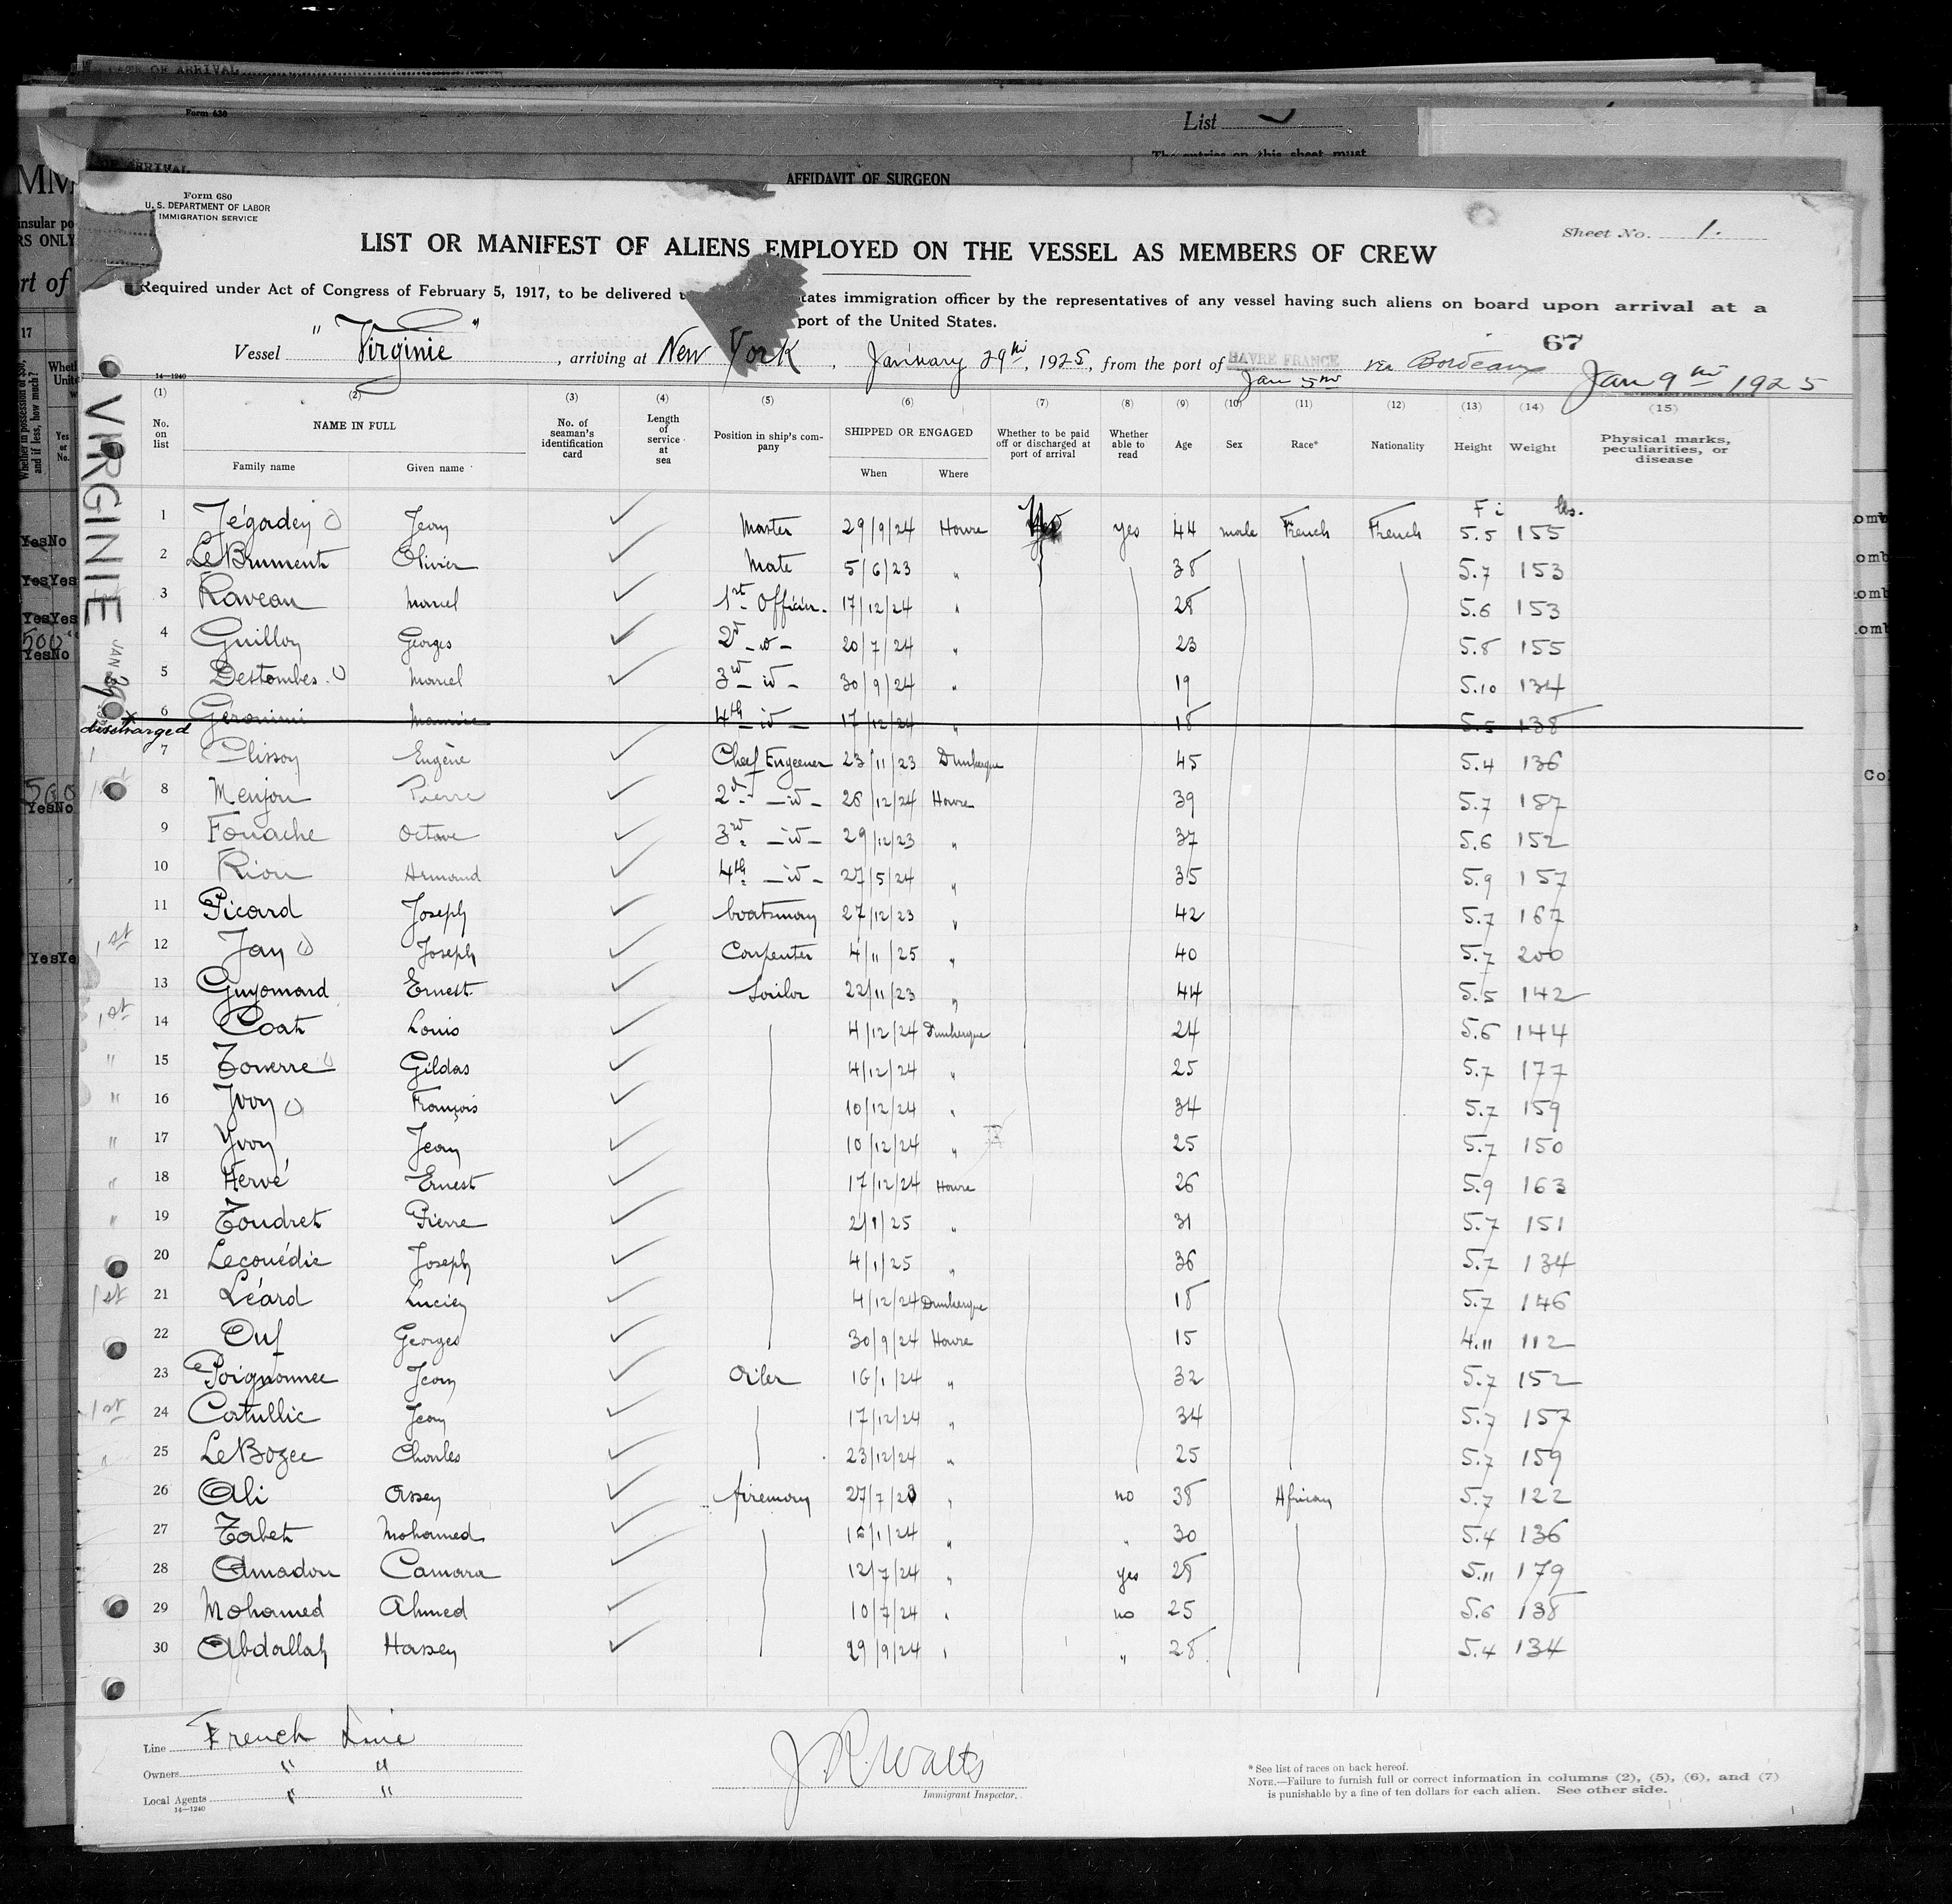 LATE OF ARRIVAL
Form 630
List
The entries on this sheet must
ARRIVAL
AFFIDAVIT OF SURGEON
Form 680
U. S. DEPARTMENT OF LABOR
IMMIGRATION SERVICE
Sheet No. 1.
LIST OR MANIFEST OF ALIENS EMPLOYED ON THE VESSEL AS MEMBERS OF CREW
Required under Act of Congress of February 5, 1917, to be delivered tates immigration officer by the representatives of any vessel having such aliens on board upon arrival at a
port of the United States.
67
Vessel "Virginie", arriving at New York, January 29th, 1925, from the port of HAVRE FRANCE via Bordeaux
Jan 5th Jan 9th 1925
14-1240
(1) (2) (3) (4) (5) (6) (7) (8) (9) (10) (11) (12) (13) (14) (15)
No. on list NAME IN FULL No. of seaman's identification card Length of service at sea Position in ship's company SHIPPED OR ENGAGED Whether to be paid off or discharged at port of arrival Whether able to read Age Sex Race* Nationality Height Weight Physical marks, peculiarities, or disease
Family name Given name When Where
VIRGINIE
F i lbs.
1 Jégadey Jean ✓ Master 29/9/24 Havre Yes yes 44 male French French 5.5 155
2 Le Brument Olivier ✓ Mate 5/6/23 " 38 5.7 153
3 Raveau Marcel ✓ 1st Officier. 17/12/24 " 28 5.6 153
4 Guillon Georges ✓ 2d -id- 20/7/24 " 23 5.8 155
5 Destombes Marcel ✓ 3rd -id- 30/9/24 " 19 5.10 134
6 Geronimi Maurice 4th -id- 17/12/24 " 18 5.5 138
discharged
7 Clisson Eugène ✓ Chief Engeener 23/11/23 Dunkerque 45 5.4 136
8 Menjou Pierre ✓ 2d -id- 26/12/24 Havre 39 5.7 187
9 Fouache Octave ✓ 3rd -id- 29/12/23 " 37 5.6 152
10 Riou Armand ✓ 4th -id- 27/5/24 " 35 5.9 157
11 Picard Joseph ✓ boatsman 27/12/23 " 42 5.7 167
1st 12 Jan Joseph ✓ Carpenter 4/11/25 " 40 5.7 200
13 Guyomard Ernest ✓ Sailor 22/11/23 " 44 5.5 142
1st 14 Coat Louis ✓ 4/12/24 Dunkerque 24 5.6 144
" 15 Tonerre Gildas ✓ 4/12/24 " 25 5.7 177
" 16 Yvon François ✓ 10/12/24 " 34 5.7 159
" 17 Yvon Jean ✓ 10/12/24 " 25 5.7 150
" 18 Hervé Ernest ✓ 17/12/24 Havre 26 5.9 163
" 19 Toudret Pierre ✓ 2/1/25 " 31 5.7 151
20 Lecouédic Joseph ✓ 4/1/25 " 36 5.7 134
1st 21 Léard Lucien ✓ 4/12/24 Dunkerque 18 5.7 146
22 Duf Georges ✓ 30/9/24 Havre 15 4.11 112
23 Poignonnec Jean ✓ Oiler 16/1/24 " 32 5.7 152
1st 24 Catullic Jean ✓ 17/12/24 " 34 5.7 157
" 25 Le Bozec Charles ✓ 23/12/24 " 25 5.7 159
26 Ali Assen ✓ fireman 27/7/23 " no 38 African 5.7 122
27 Tabet Mohamed ✓ 16/1/24 " " 30 5.4 136
28 Amadou Camara ✓ 12/7/24 " yes 28 5.11 179
29 Mohamed Ahmed ✓ 10/7/24 " no 25 5.6 138
30 Abdallah Hassen ✓ 29/9/24 " " 28 5.4 134
Line French Line
Owners " "
Local Agents " "
14-1240
J. R. Watts
Immigrant Inspector.
* See list of races on back hereof.
NOTE.—Failure to furnish full or correct information in columns (2), (5), (6), and (7)
is punishable by a fine of ten dollars for each alien. See other side.